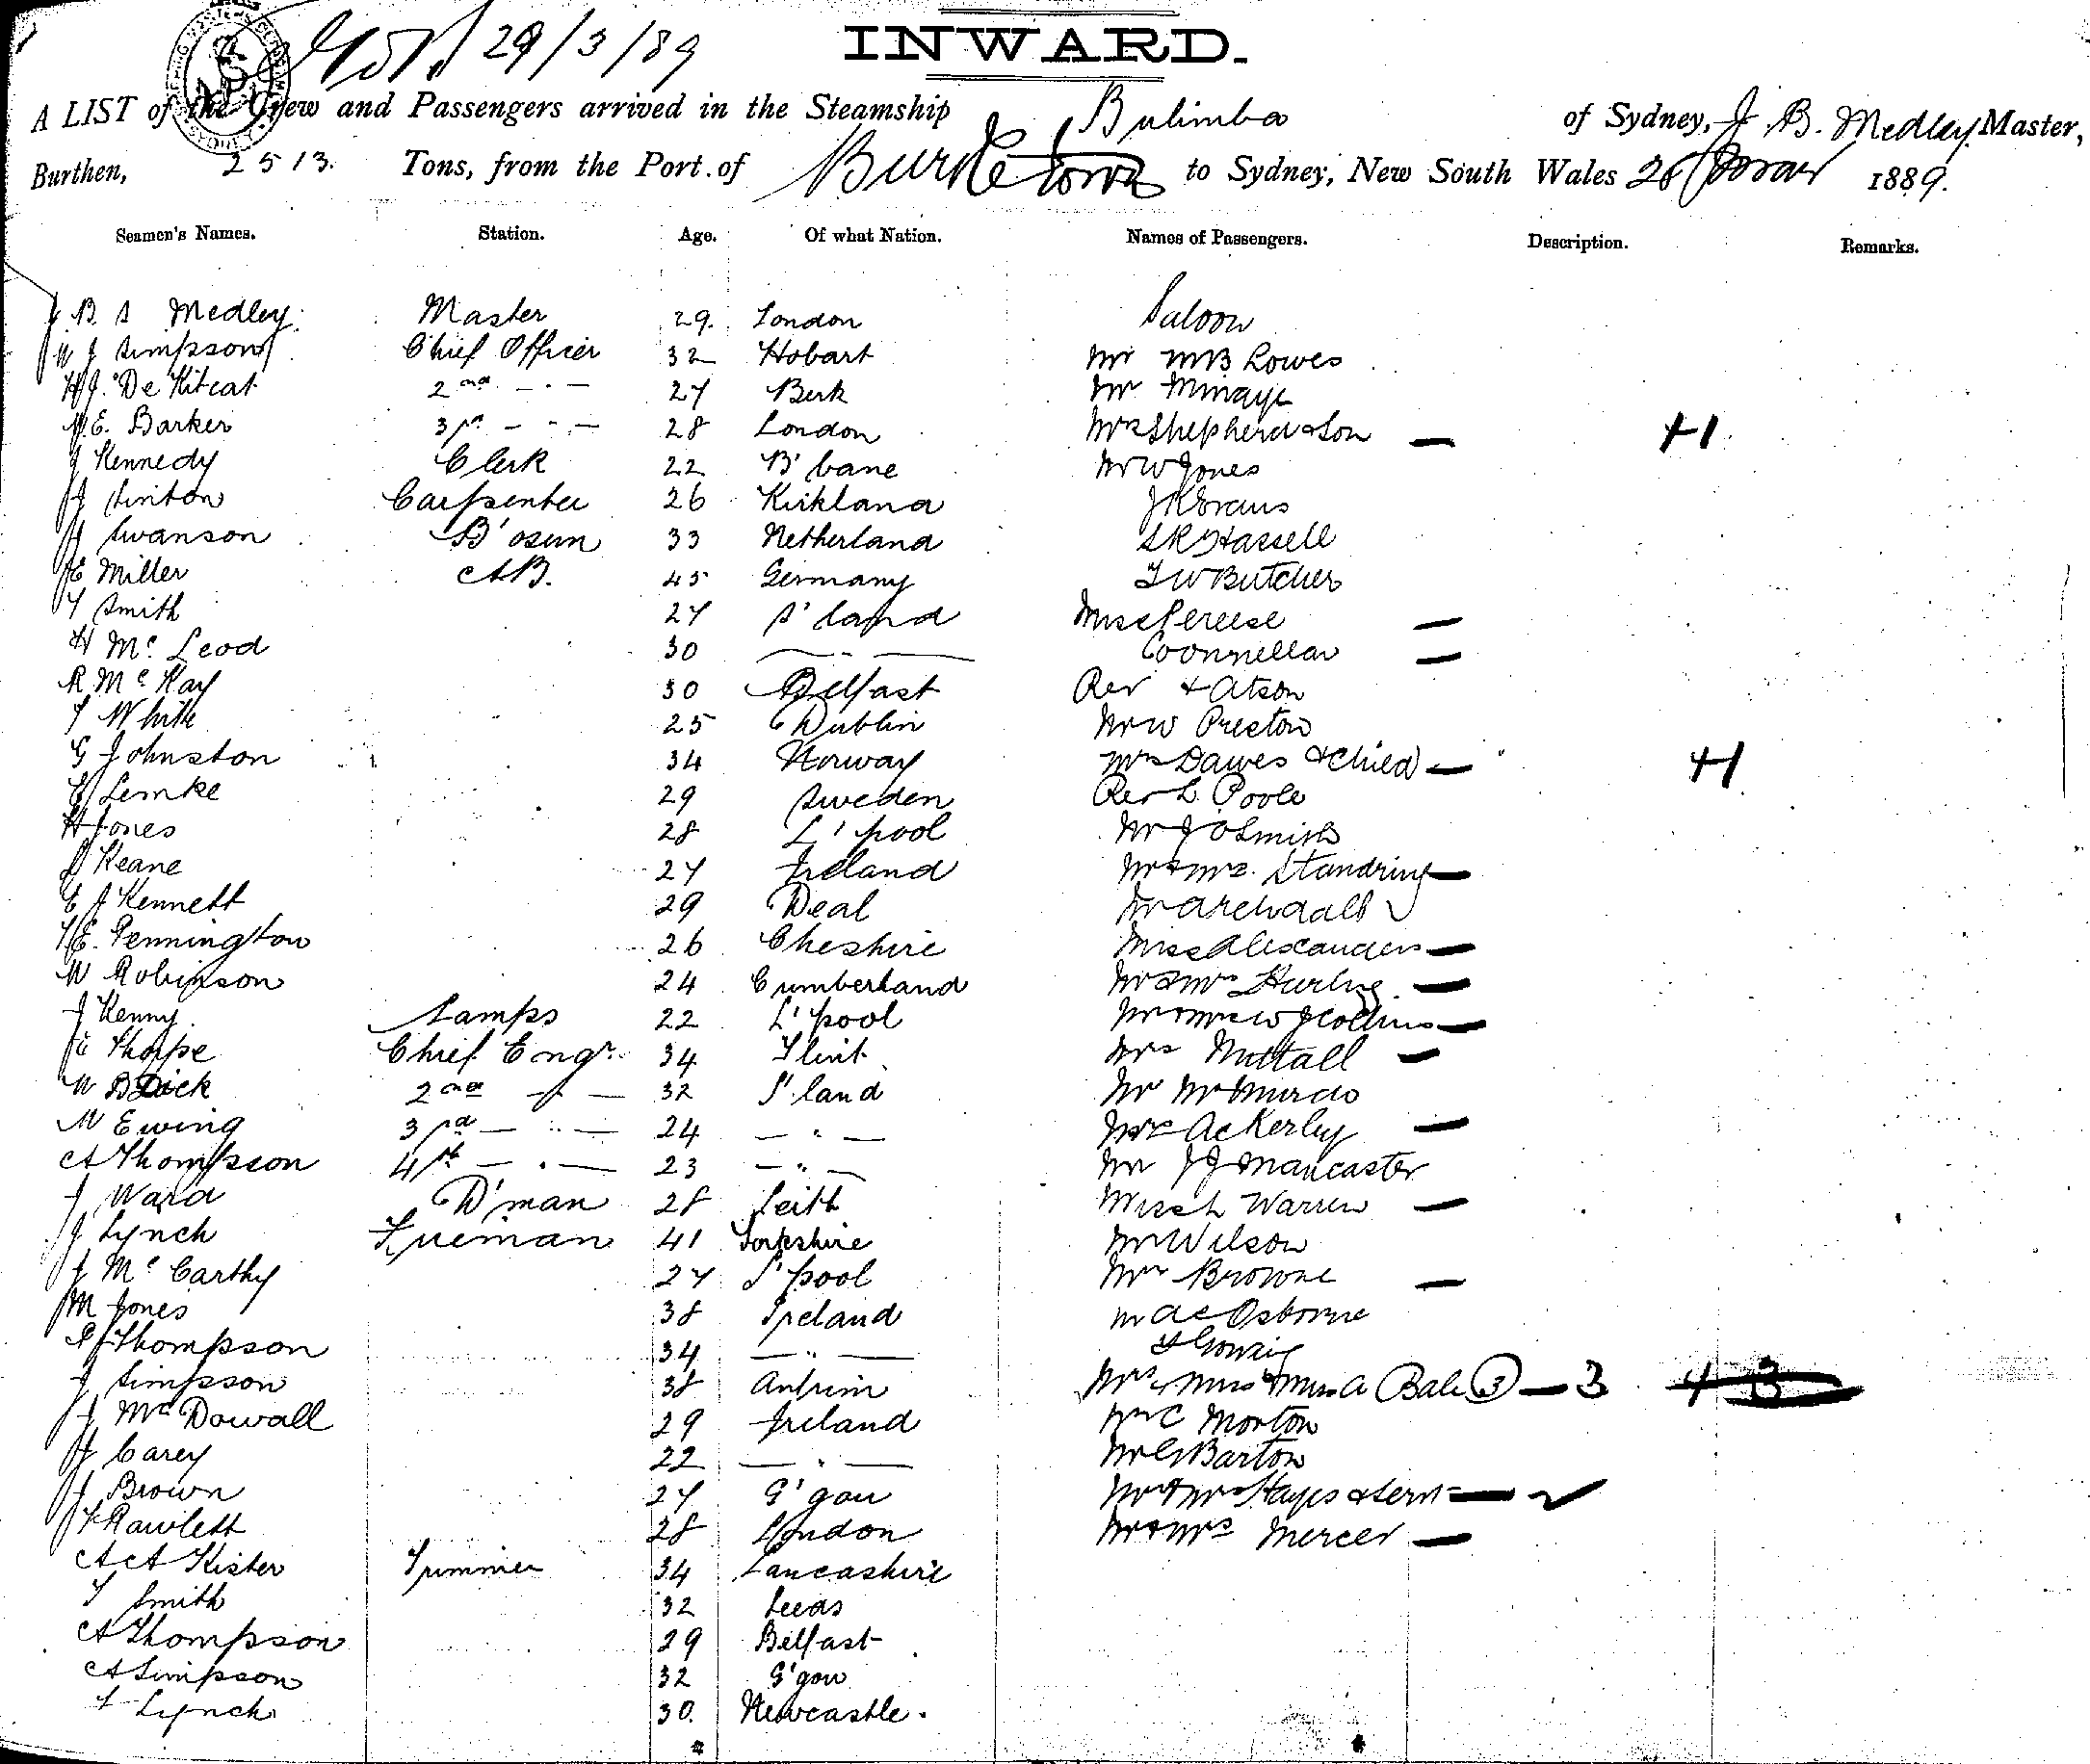 29/3/89
INWARD.
A LIST of the Crew and Passengers arrived in the Steamship Bulimba of Sydney, J. B. Medley Master,
Burthen, 2513. Tons, from the Port of Burketown to Sydney, New South Wales 28 Mar 1889.
Seamen's Names. Station. Age. Of what Nation. Names of Passengers. Description. Remarks.
J. B. S Medley Master 29. London Saloon
W J Simpson Chief Officer 32 Hobart Mr M B Lowes
H J. De Kitcat 2nd 27 Berk Mr
E. Barker 3rd 28 London Mrs Shepherd & Son
J Kennedy Clerk 22 B'bane Mr W Jones
J Sinton Carpenter 26 Kirkland J K Evans
J Swanson B'osun 33 Netherland S R Hassell
E Miller AB. 45 Germany T W Butcher
T Smith 27 S'land Miss
H Mc Leod 30 — " —
R Mc Kay 30 Belfast Rev
T White 25 Dublin Mr W Preston
G Johnston 34 Norway Mrs Dawes & Child
C Lemke 29 Sweden Rev L Poole
H Jones 28 L'pool Mr J O Smith
J Keane 27 Ireland Mr & Mrs. Standring
E J Kennett 29 Deal Mr Archdall
T E. Pennington 26 Cheshire Miss Alexander
W Robinson 24 Cumberland Mr & Mrs
J Kenny Lamps 22 L'pool Mr & Mrs W J Collins
E Thorpe Chief Engr. 34 Flint Mrs Nuttall
W B Dick 2nd 32 S'land Mr
W Ewing 3rd 24 — " — Mrs Ackerley
A Thompson 4th 23 — " — Mr J J Mancaster
J Ward D'man 28 Leith Miss L Warren
J Lynch Fireman 41 Yorkshire Mr Wilson
J Mc Carthy 27 L'pool Mrs Browne
M Jones 38 Ireland Mr A C Osborne
P J Thompson 34 — " —
J Simpson 38 Antrim Mrs Miss & Miss A Bale (3) — 3
J Mc Dowall 29 Ireland Mr C Morton
J Carey 22 — " — Mr G Barton
J Brown 27 G'gow Mr & Mrs Hayes & Servt
F Rawlett 28 London Mr & Mrs Mercer
A A Kister Trimmer 34 Lancashire
T Smith 32 Leeds
A Thompson 29 Belfast
A Simpson 32 G'gow
T Lynch 30. Newcastle.